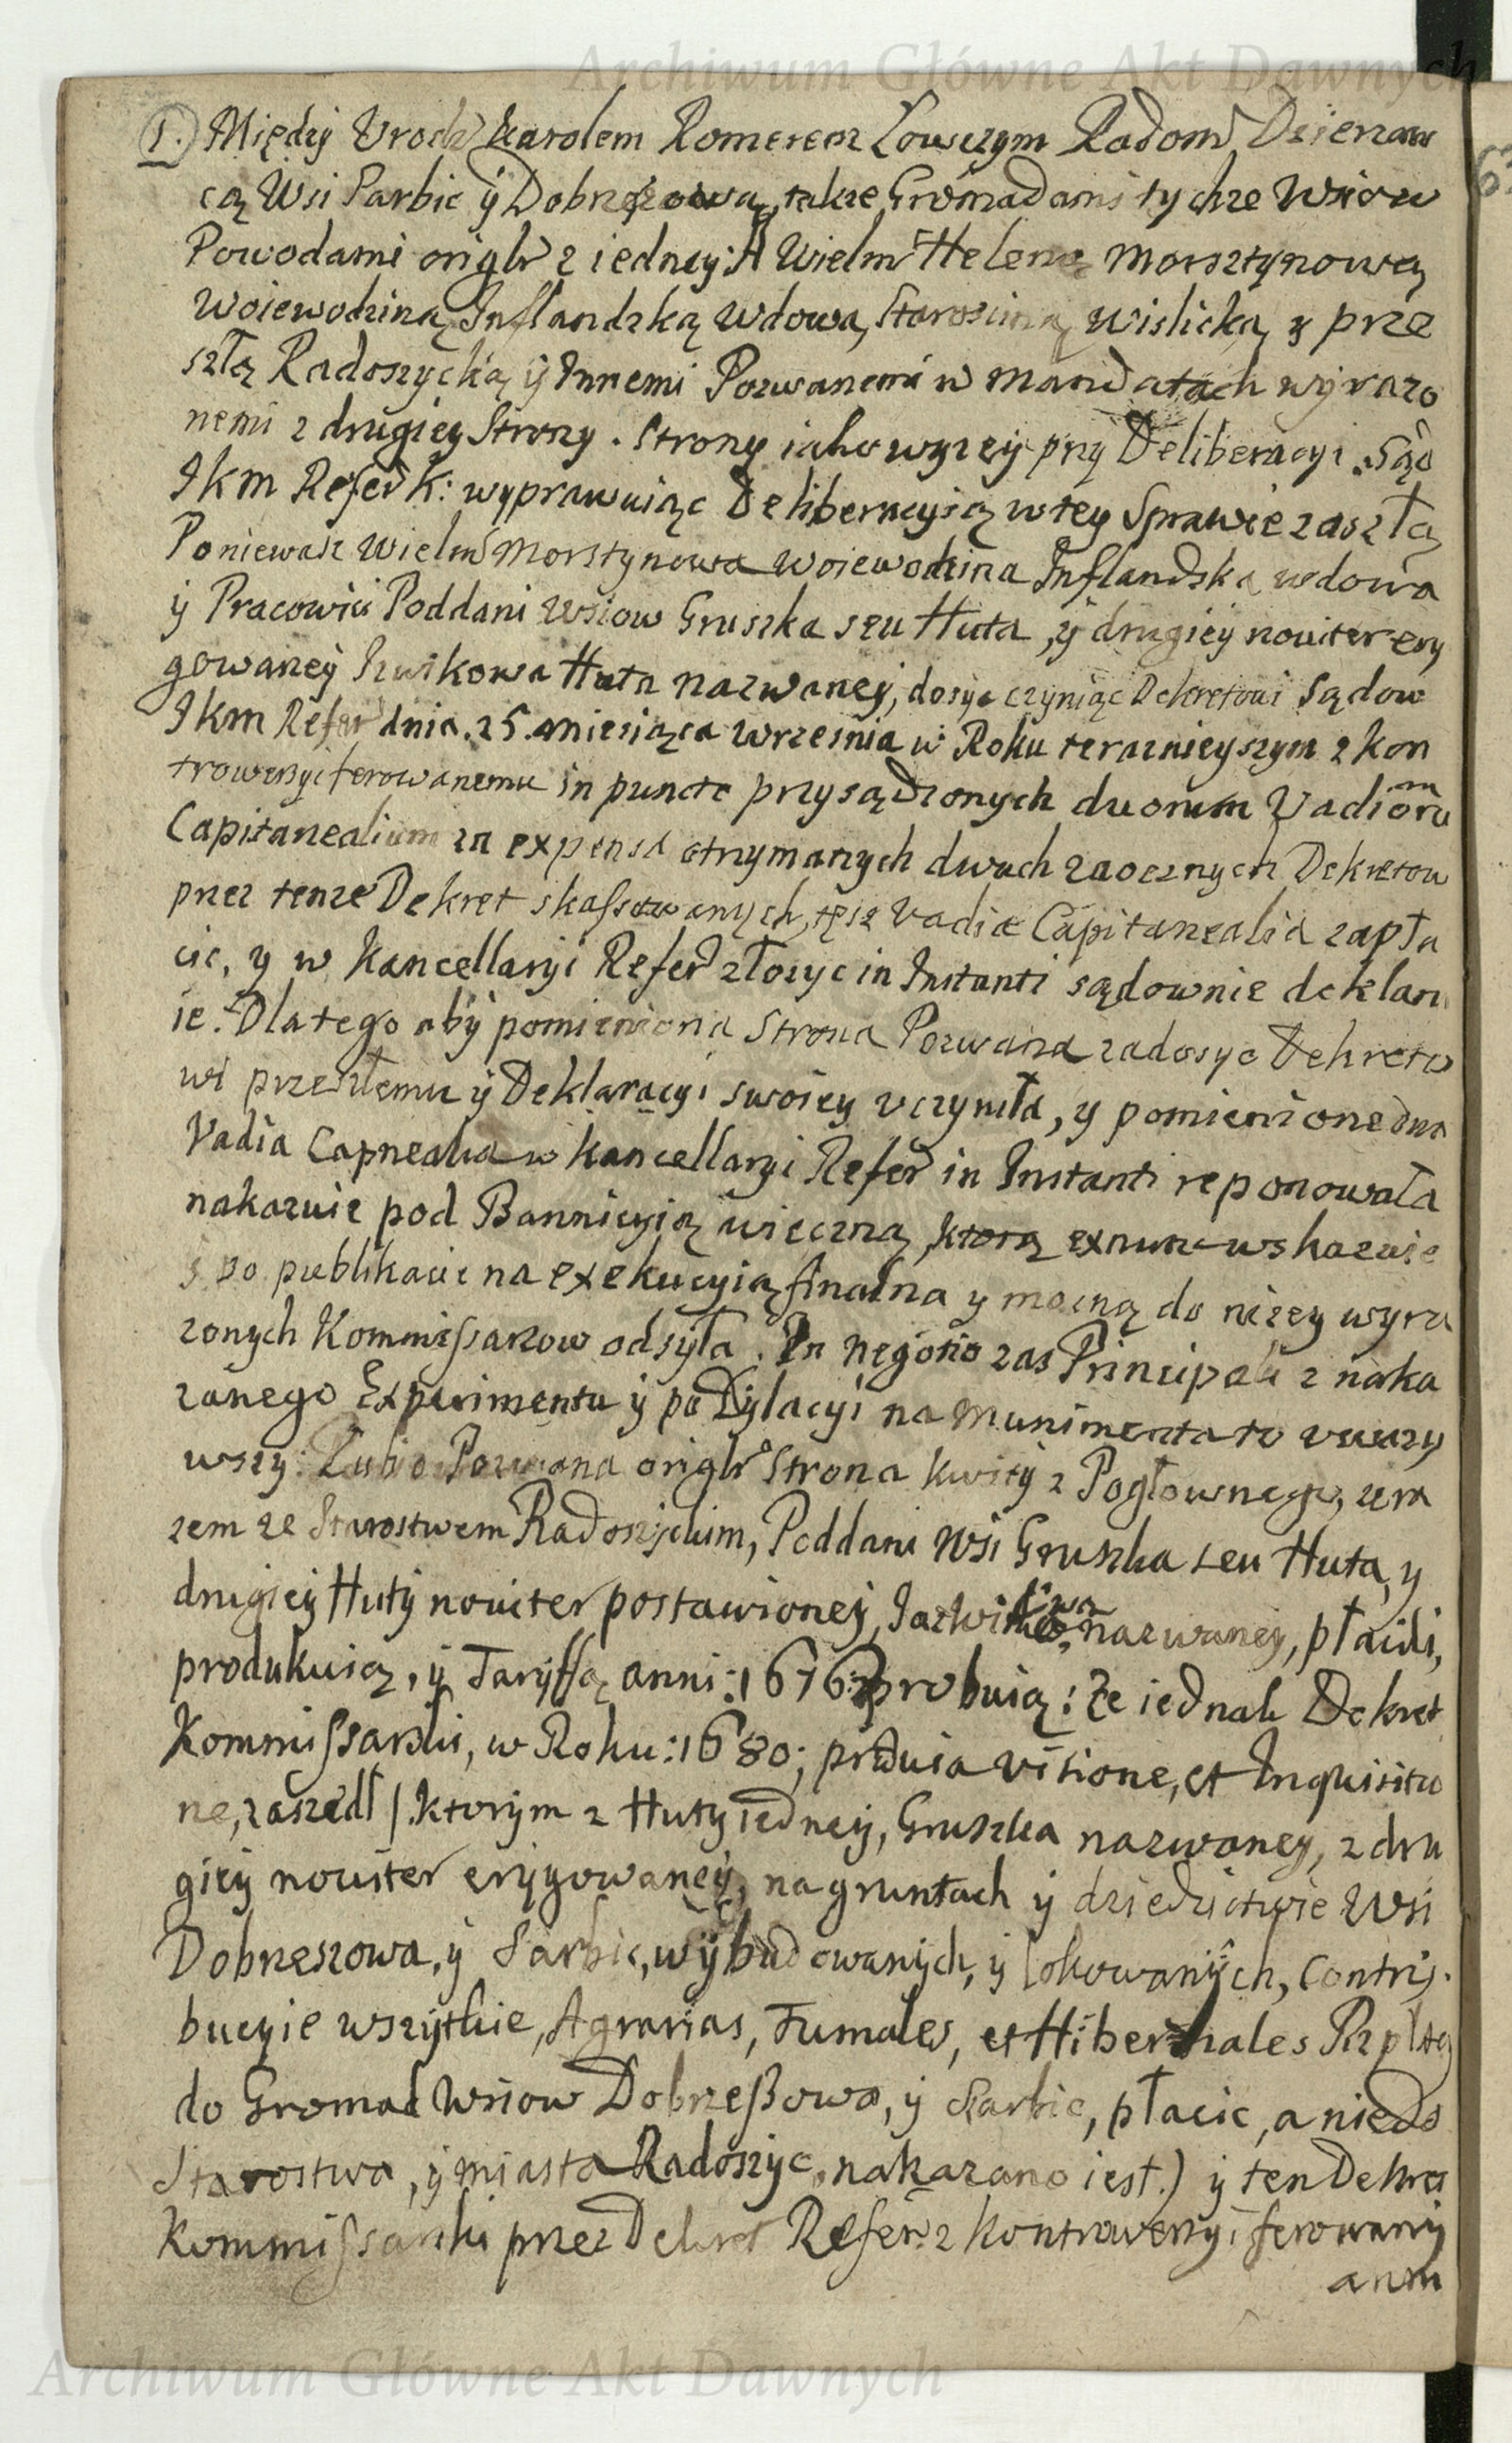 Archiwum Główne Akt Dawnych
1. Między Urodz Karolem Romerem Łowczym Radom Dzierzaw
cą Wsi Sarbic ÿ Dobrzeszowa, takze Gromadami tychze Wsiow
Powodami origlr z iedney: A Wielm Heleną Morsztynową
Woiewodziną Inflandzką Wdową, Starosciną Wislicką y prze
szłą Radoszycką ÿ Innemi Pozwanemi w Mandatach wÿrazo
nemi z drugiey Strony. Strony iako wyzeÿ przÿ Deliberacyi. Sąd
Ikm Refer K: wyprawuiąc Deliberacyią w tey Sprawie zaszłą
Poniewasz Wielm Morstynowa Woiewodzina Inflandska wdowa
ÿ Pracowici Poddani Wsiow Gruszka seu Huta, ÿ drugieÿ noviter ery
gowaneÿ Huta nazwaneÿ, dosyc czyniąc Dekretowi Sądow
Ikm Refer dnia. 25. Miesiąca Wrzesnia w Roku teraznieyszym z kon
trowersyi ferowanemu in puncto przysądzonych duorum Vadiorum
Capitanealium za expensa otrzymanych dwuch zaocznych Dekretow
przez tenze Dekret skassowanych, tesz Vadia Capitanealia zapła
cic, y w Kancellaryi Refer złozyc in Instanti sądownie deklaru
ie. Dlatego abÿ pomieniona Strona Pozwana zadosyc Dekreto
wi przeszłemu ÿ Deklaracyi swoiey uczyniła, y pomienione dwa
Vadia Capnealia w Kancellaryi Refer in Instanti reponowała
nakazuie pod Bannicyią wieczną, ktorą exnunc wskazuie
y po publikacie na exekucyią finalna y mocną do nizey wyra
zonych Kommissarzow odsyła. In negotio zas Principali z naka
zanego Experimentu ÿ po Dÿlacyi na Munimenta to uwazy
wszy: Lubo Pozwana origlr Strona kwitÿ z Pogłownego, ze ra
zem ze Starostwem Radoszÿckim, Poddani Wsi Gruszka seu Huta, y
drugieÿ Hutÿ noviter postawioneÿ, nazwaneÿ, płacili,
produkuią, ÿ Tarÿffą anni: 1676 probuią: Ze iednak Dekret
Kommissarski, w Roku: 1680; prævia visione, et Inquisitio
ne, zaszedł /. ktorÿm z Hutÿ iedneÿ, Gruszka nazwaneÿ, z dru
gieÿ noviter erÿgowaneÿ, na gruntach ÿ dziedzictwie Wsi
Dobrzeszowa, ÿ Sarbic, wÿbudowanÿch, ÿ lokowanÿch, Contrÿ.
bucyie wszÿtkie, Agrarias, Fumales, et Hibernales Rzpltey
do Gromad Wsiow Dobrzeszowa, ÿ Sarbic, płacic, a nie do
Starostwa, ÿ Miasta Radoszyc, nakazano iest.) ÿ ten Dekret
Kommissarski przez Dekret Refer: z Kontrowersyi ferowanÿ
anni
Archiwum Główne Akt Dawnych